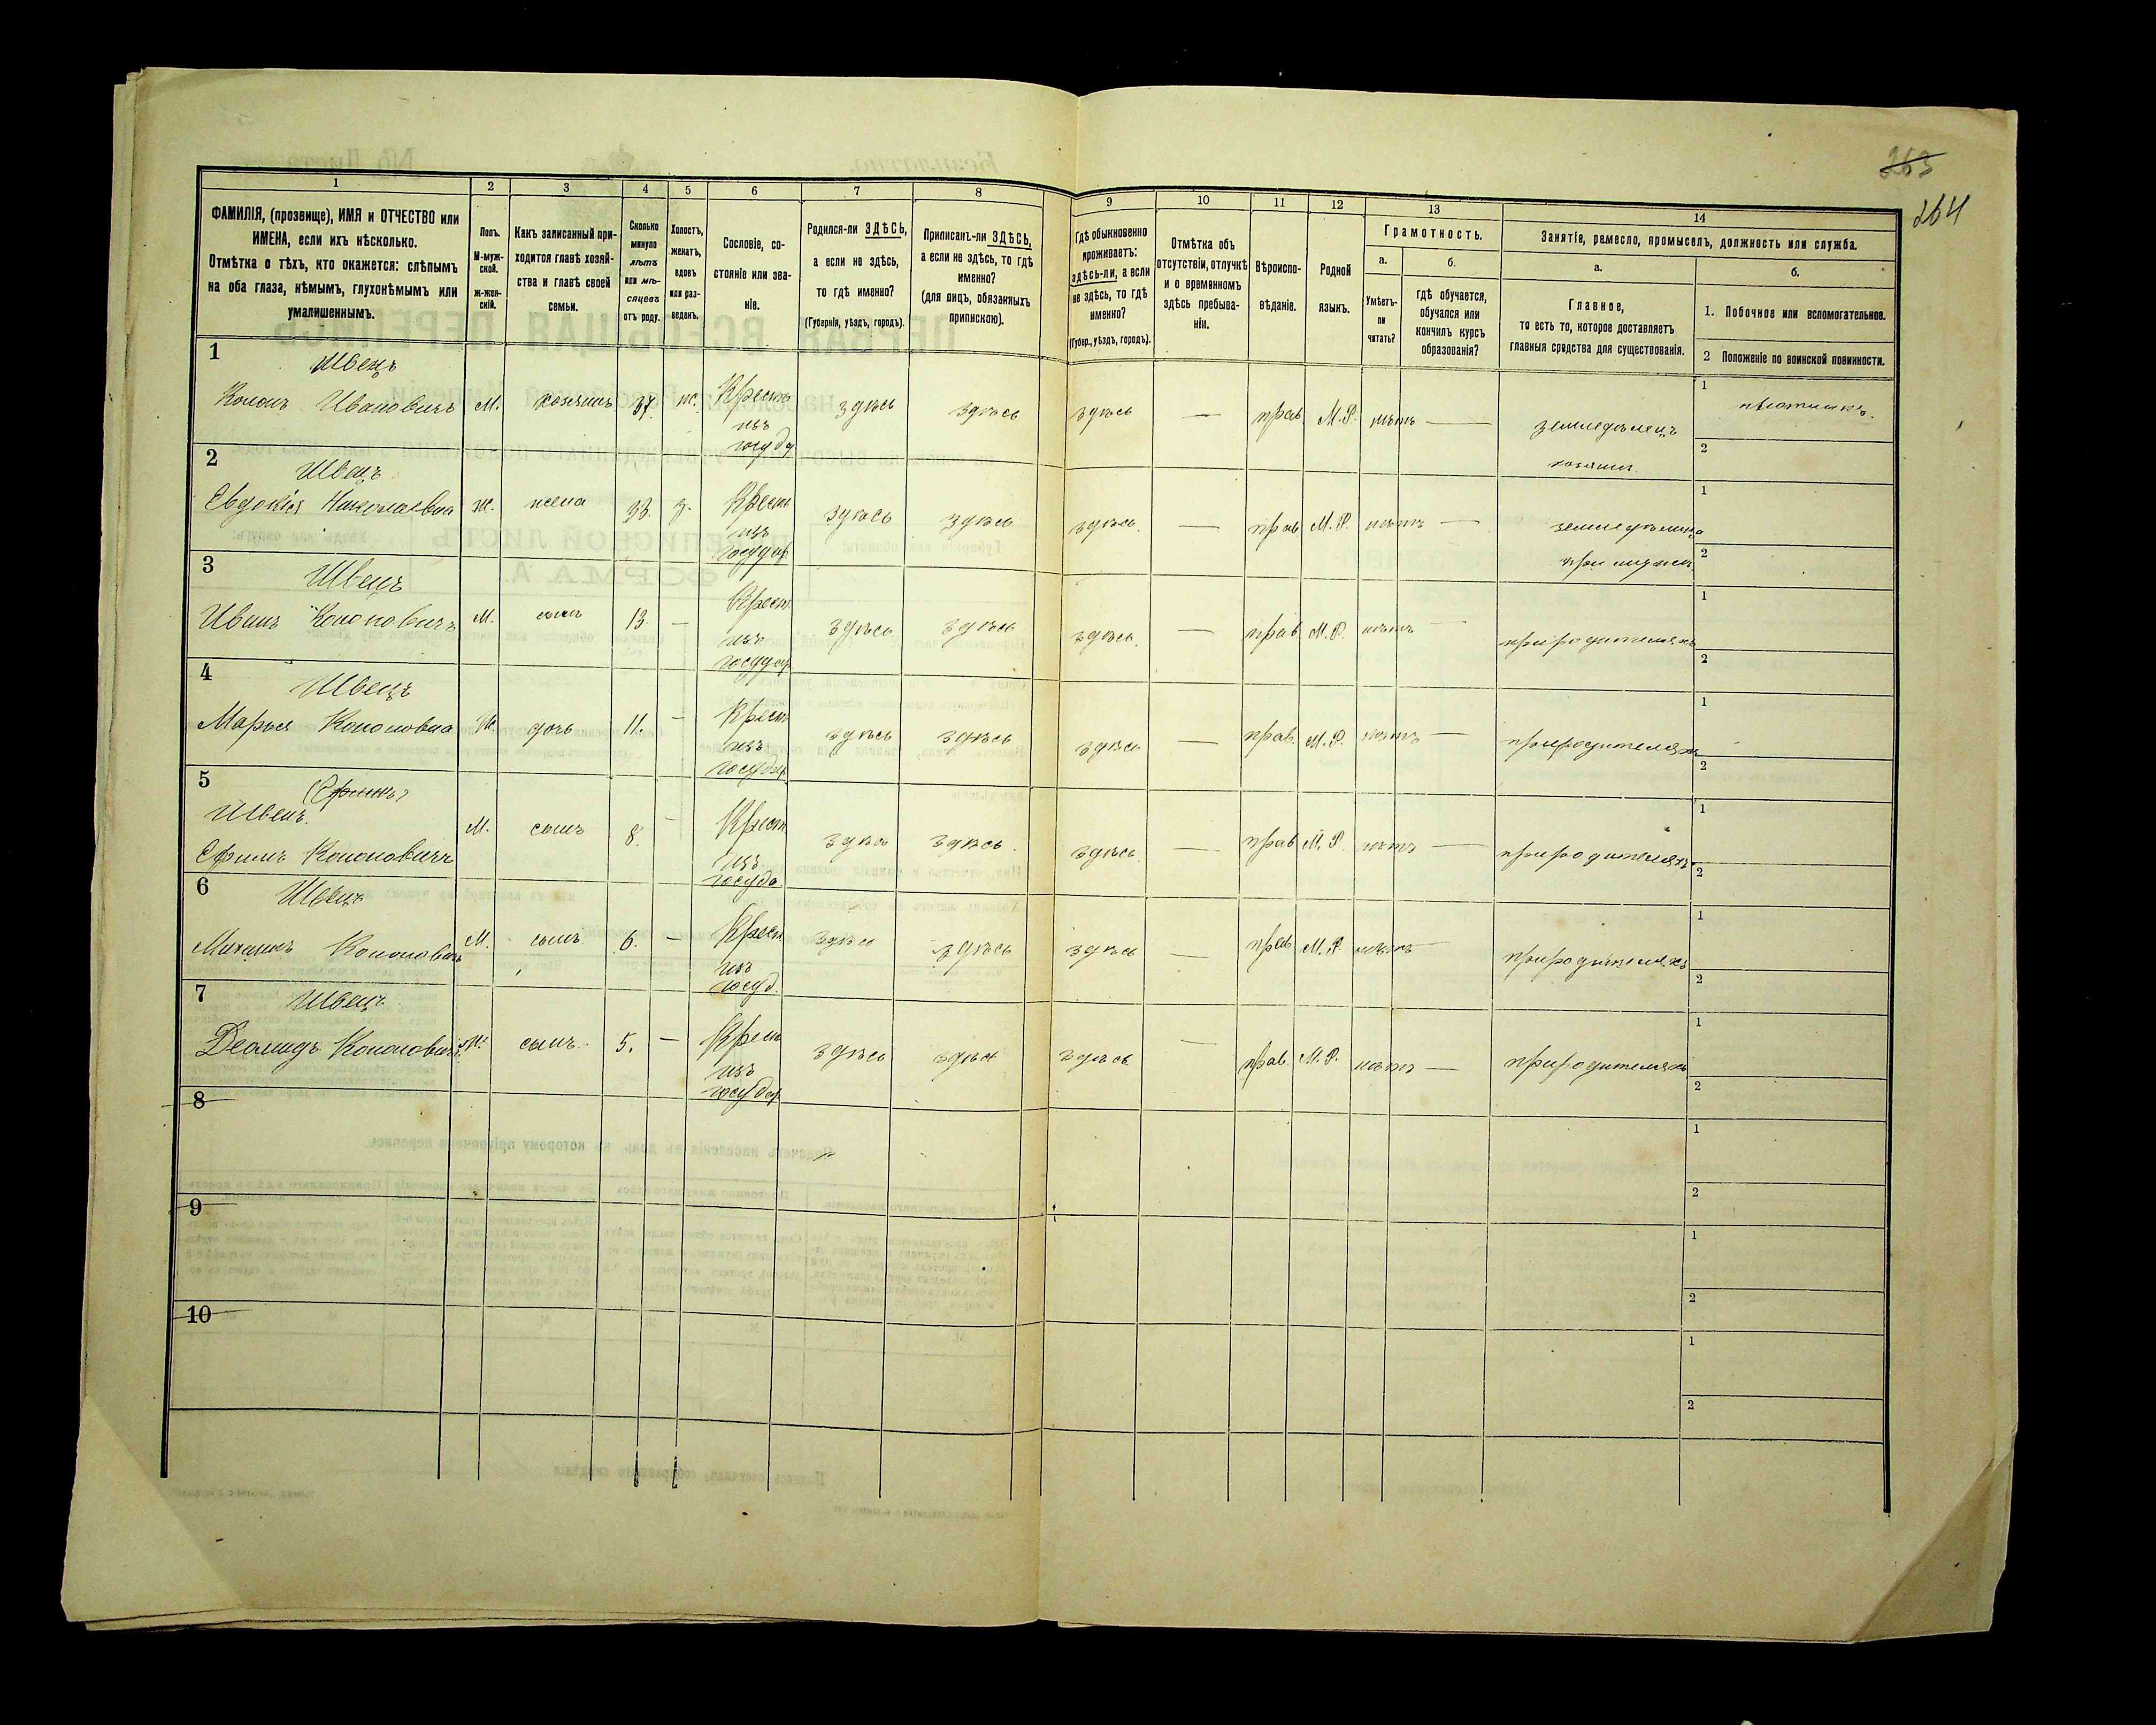 263
264
1
2
3
4
5
6
7
8
9
10
11
12
13
14
ФАМИЛІЯ, (прозвище), ИМЯ и ОТЧЕСТВО или
ИМЕНА, если ихъ нѣсколько.
Отмѣтка о тѣхъ, кто окажется: слѣпымъ
на оба глаза, нѣмымъ, глухонѣмымъ или
умалишеннымъ.
Полъ.
М-муж-
ской.
ж-жен-
скій.
Какъ записанный при-
ходится главѣ хозяй-
ства и главѣ своей
семьи.
Сколько
минуло
лѣтъ
или мѣ-
сяцевъ
отъ роду.
Холостъ,
женатъ,
вдовъ
или раз-
веденъ.
Сословіе, со-
стояніе или зва-
ніе.
Родился-ли ЗДѢСЬ,
а если не здѣсь,
то гдѣ именно?
(Губернія, уѣздъ, городъ).
Приписанъ-ли ЗДѢСЬ,
а если не здѣсь, то гдѣ
именно?
(для лицъ, обязанныхъ
припискою).
Гдѣ обыкновенно
проживаетъ:
здѣсь-ли, а если
не здѣсь, то гдѣ
именно?
(Губер., уѣздъ, городъ).
Отмѣтка объ
отсутствіи, отлучкѣ
и о временномъ
здѣсь пребыва-
ніи.
Вѣроиспо-
вѣданіе.
Родной
языкъ.
Грамотность.
а.
Умѣетъ-
ли
читать?
б.
гдѣ обучается,
обучался или
кончилъ курсъ
образованія?
Занятія, ремесло, промыселъ, должность или служба.
а.
Главное,
то есть то, которое доставляетъ
главныя средства для существованія.
б.
1. Побочное или вспомогательное.
2 Положеніе по воинской повинности.
1
Швецъ
Кононъ Ивановичъ М. хозяинъ 37 ж. Крестъ здѣсь здѣсь здѣсь — прав. М.Р. нѣтъ — земледѣлецъ 1 плотникъ.
изъ
госуд
хозяинъ 2
2
Швецъ
Евдокія Николаевна ж. жена 33. з. Крест здѣсь здѣсь здѣсь — прав М.Р. нѣтъ — земледѣлица 1
изъ
государ
при мужѣ. 2
3
Швецъ
Иванъ Кононовичъ М. сынъ 13. — Крест здѣсь здѣсь здѣсь — прав М.Р. нѣтъ — при родителяхъ 1
изъ
государ
2
4
Швецъ
Марья Кононовна Ж. дочь 11. — Крест здѣсь здѣсь здѣсь — прав. М.Р. нѣтъ — при родителяхъ 1
изъ
государ
2
5
Швецъ
Ефимъ Кононовичъ М. сынъ 8. — Крест здѣсь здѣсь здѣсь — прав М.Р. нѣтъ — при родителяхъ 1
изъ
госуда
2
6
Швецъ
Михаилъ Кононовичъ М. сынъ. 6. — Крест здѣсь здѣсь здѣсь — прав М.Р. нѣтъ — при родителяхъ 1
изъ
госуд.
2
7
Швецъ
Деомидъ Кононовичъ М. сынъ. 5. — Крест здѣсь здѣсь здѣсь — прав. М.Р. нѣтъ — при родителяхъ 1
изъ
государ
2
8
1
2
9
1
2
10
1
2